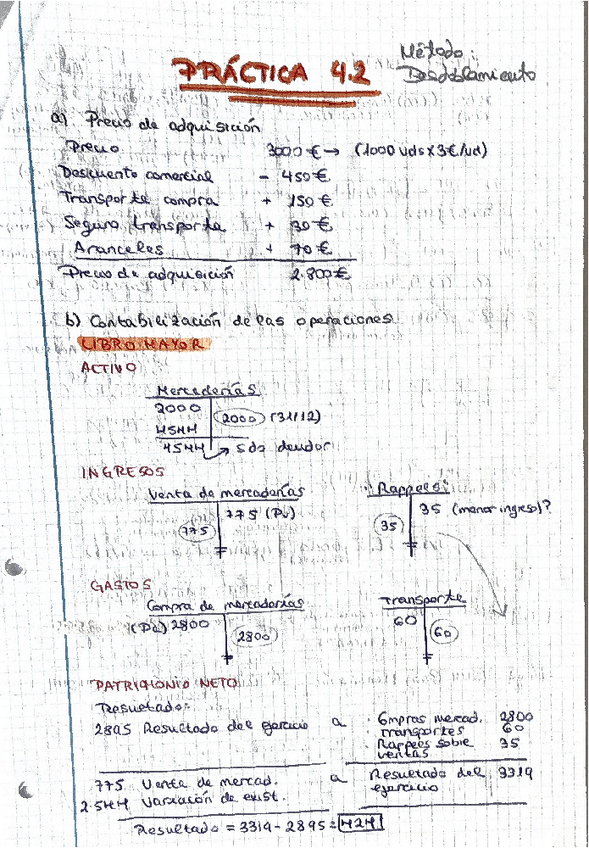 Método:
PRÁCTICA 4.2 Desdoblamiento
a) Precio de adquisición
Precio 3000 € → (1000 uds x 3€/ud)
Descuento comercial - 450 €
Transporte compra + 150 €
Seguro transporte + 30 €
Aranceles + 70 €
Precio de adquisición 2.800 €
b) Contabilización de las operaciones
LIBRO MAYOR
ACTIVO
Mercaderías
2000 2000 (31/12)
4544
4544 → Sdo deudor
INGRESOS
Venta de mercaderías Rappels:
775 (Pv) 35 (menor ingreso)?
775 35
GASTOS
Compra de mercaderías Transporte
(Pa) 2800 60
2800 60
PATRIMONIO NETO
Resultado:
2895 Resultado del ejercicio a · Compras mercad. 2800
· Transportes 60
· Rappels sobre 35
ventas
775 Venta de mercad. a Resultado del 3319
2.544 Variación de exist. ejercicio
Resultado = 3319 - 2895 = 424